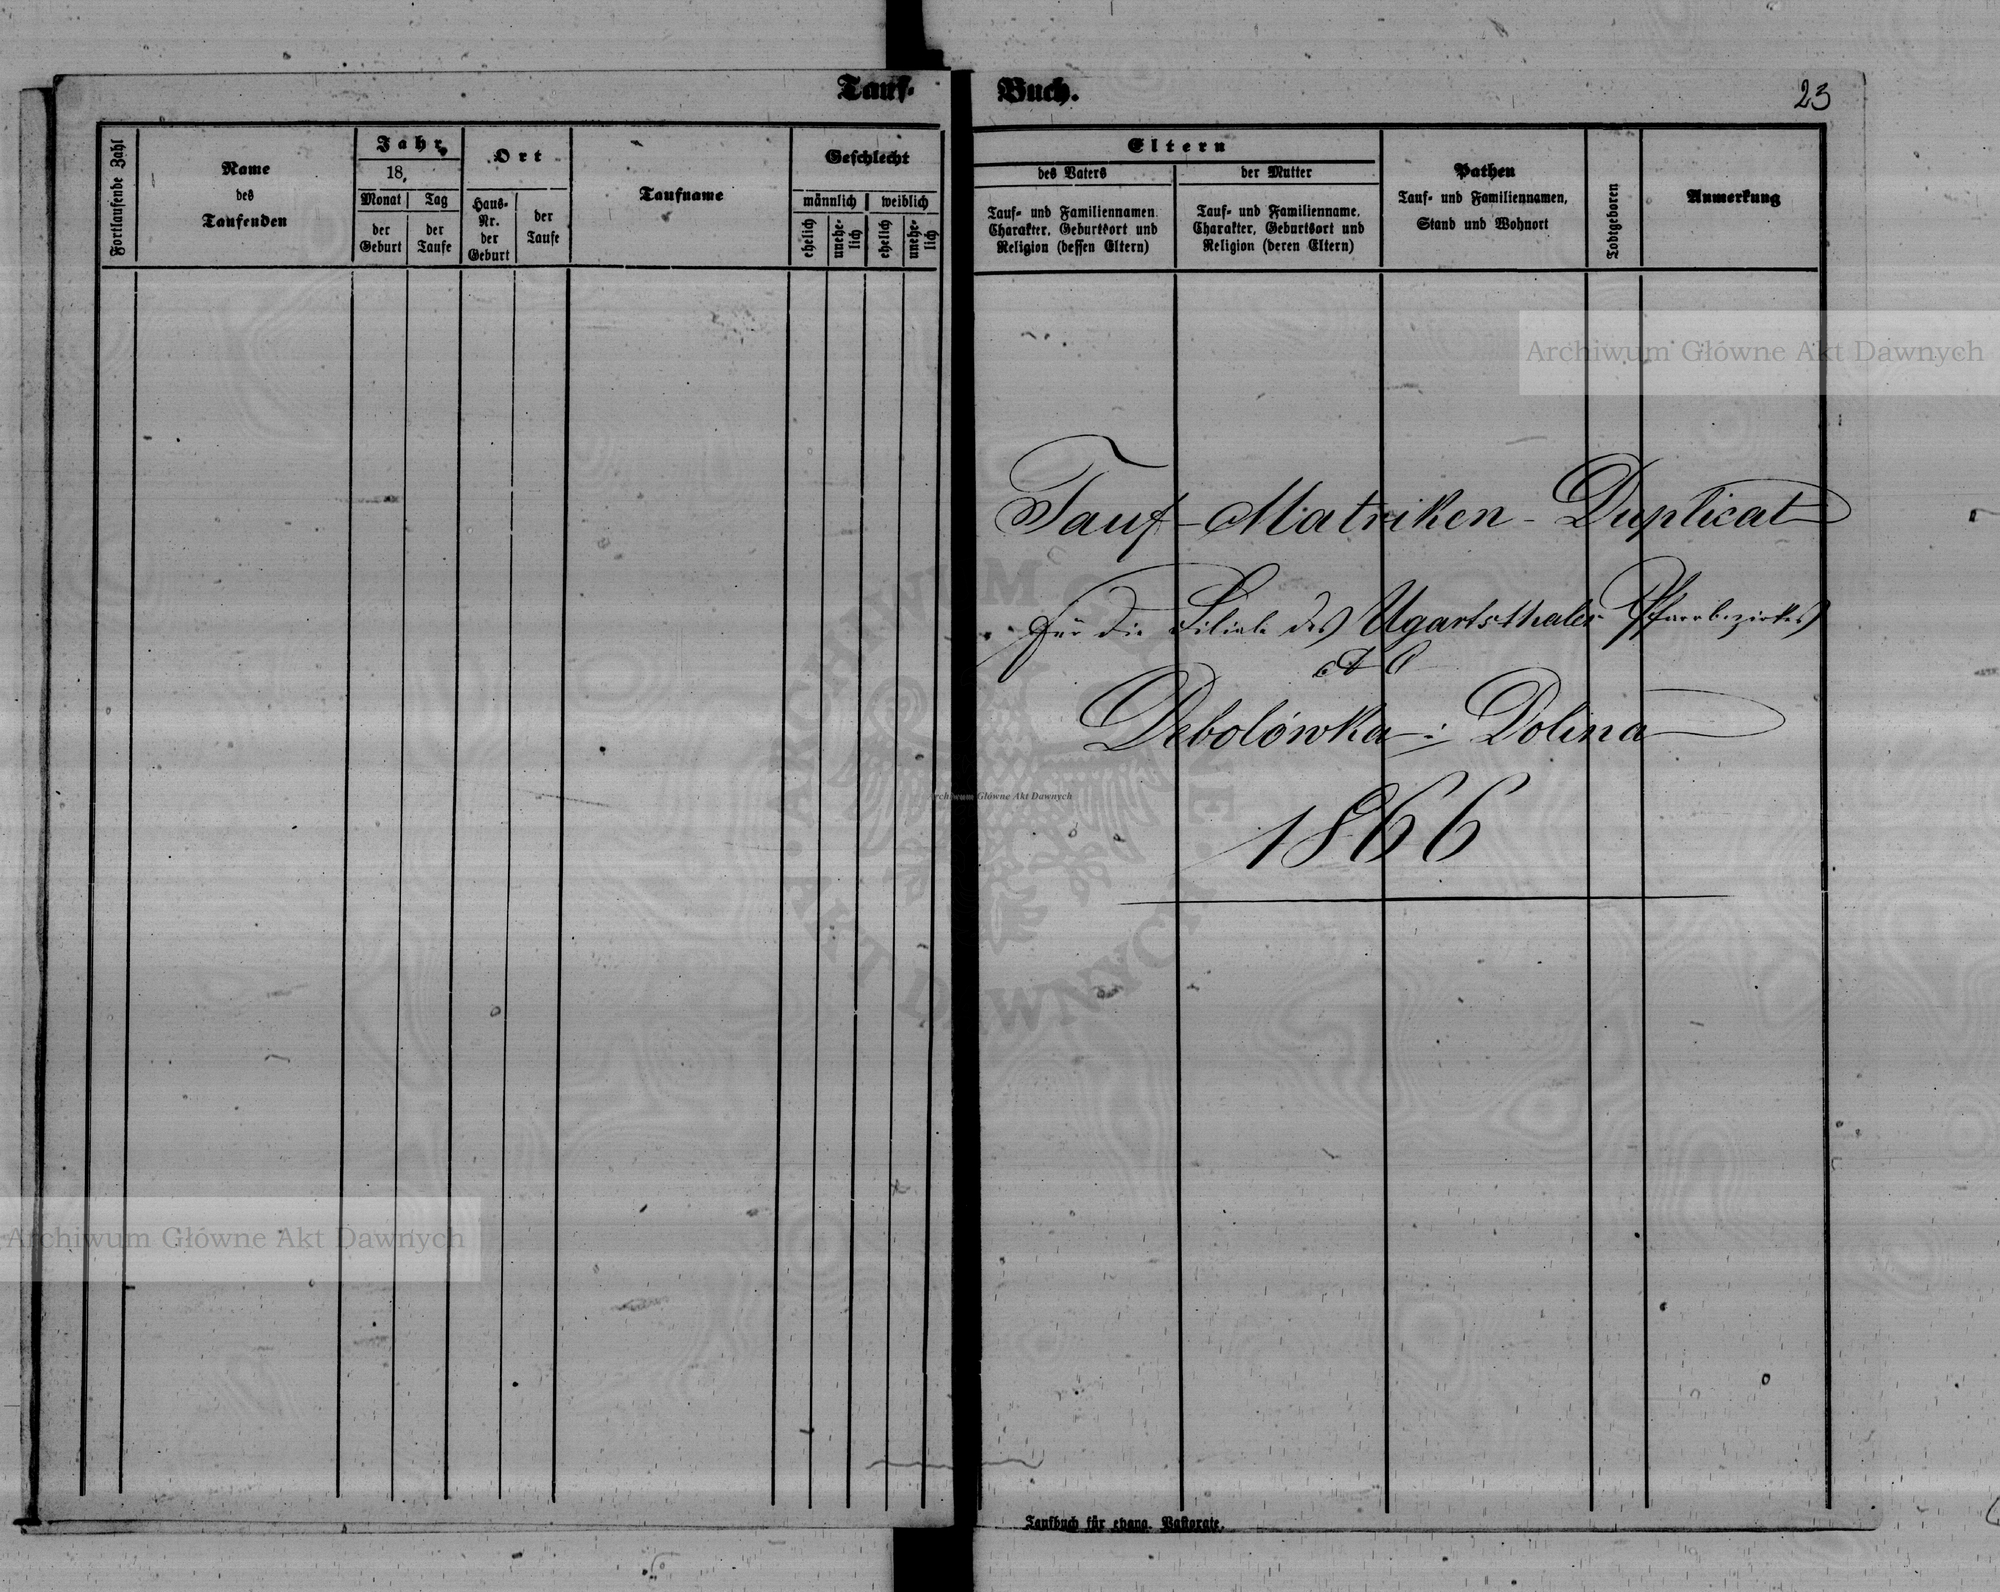 Tauf-Buch.
23
Fortlaufende Zahl
Name
des
Taufenden
Jahr
18
Monat
der
Geburt
Tag
der
Taufe
Ort
Haus-
Nr.
der
Geburt
der
Taufe
Taufname
Geschlecht
männlich
weiblich
ehelich
unehe-
lich
ehelich
unehe-
lich
Eltern
des Vaters
Tauf- und Familiennamen,
Charakter, Geburtsort und
Religion (dessen Eltern)
der Mutter
Tauf- und Familienname,
Charakter, Geburtsort und
Religion (deren Eltern)
Pathen
Tauf- und Familiennamen,
Stand und Wohnort
Todtgeboren
Anmerkung
Archiwum Główne Akt Dawnych
Tauf-Matriken-Duplicat
für die Filiale des Ugartsthaler Pfarrbezirkes
A C
Debolówka : Dolina
1866
Archiwum Główne Akt Dawnych
ARCHIWUM GŁÓWNE AKT DAWNYCH
Archiwum Główne Akt Dawnych
Taufbuch für evang. Pastorate.